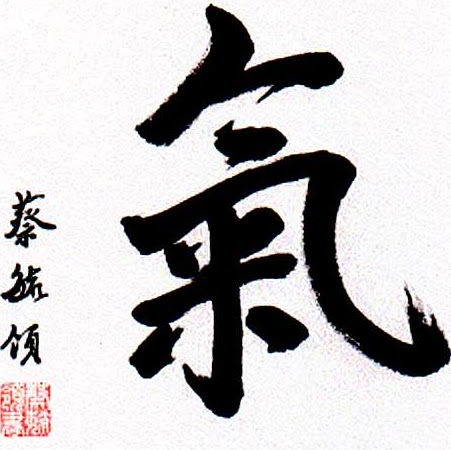 氣
蔡毓領